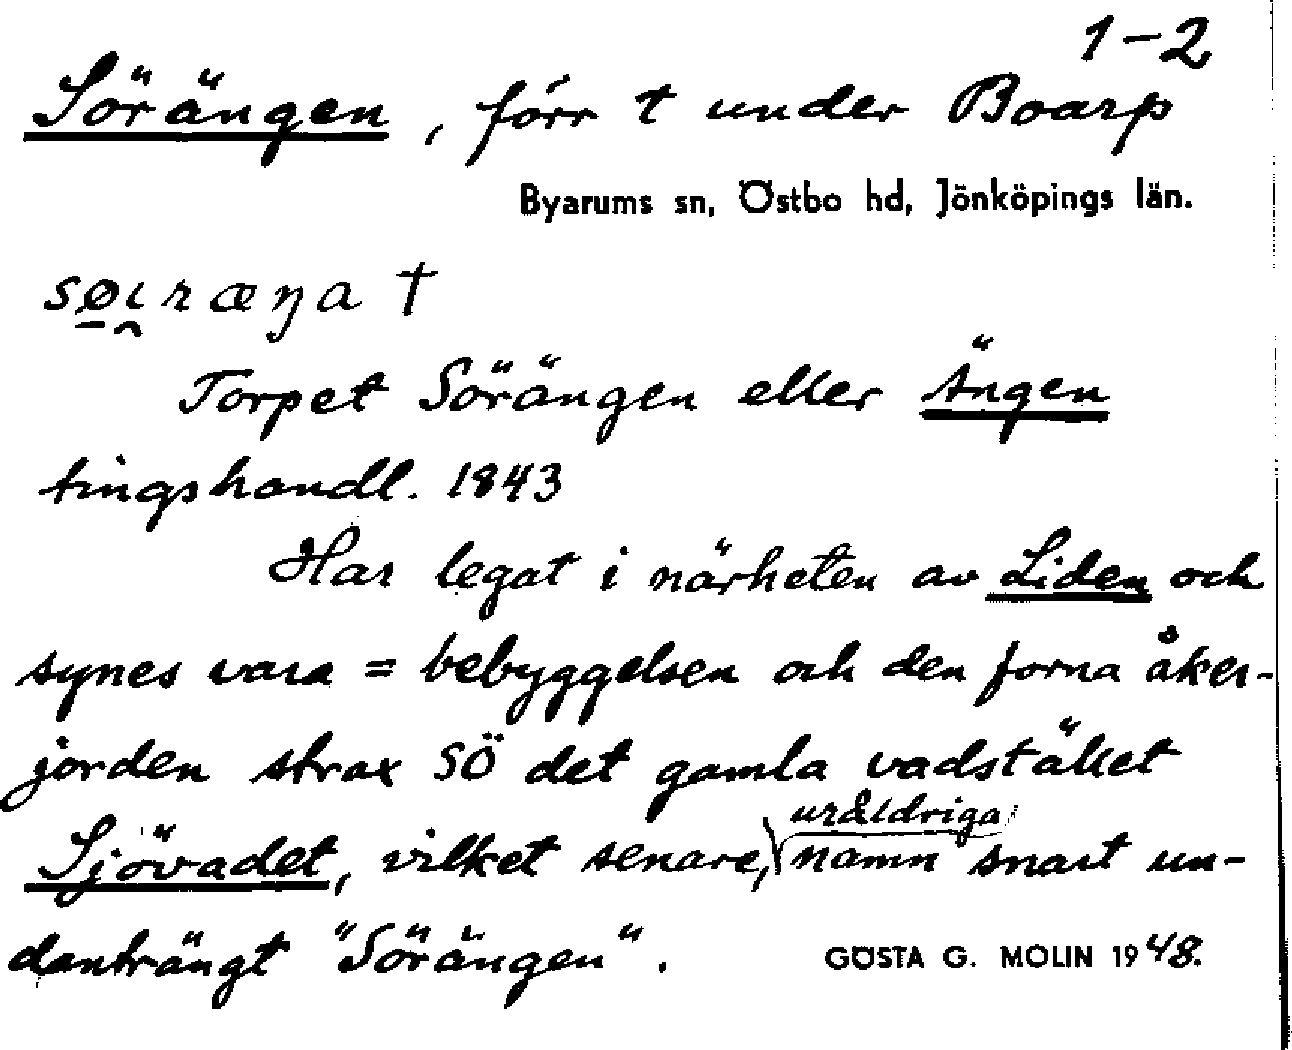 1-2
Sörängen, förr t under Boarp
Byarums sn, Östbo hd, Jönköpings län.
søɩræŋa †
Torpet Sörängen eller Ängen
tingshandl. 1843
Har legat i närheten av Liden och
synes vara = bebyggelsen och den forna åker-
jorden strax SÖ det gamla vadstället
uråldriga
Sjövadet, vilket senare, namn snart un-
danträngt "Sörängen".
GÖSTA G. MOLIN 1948.